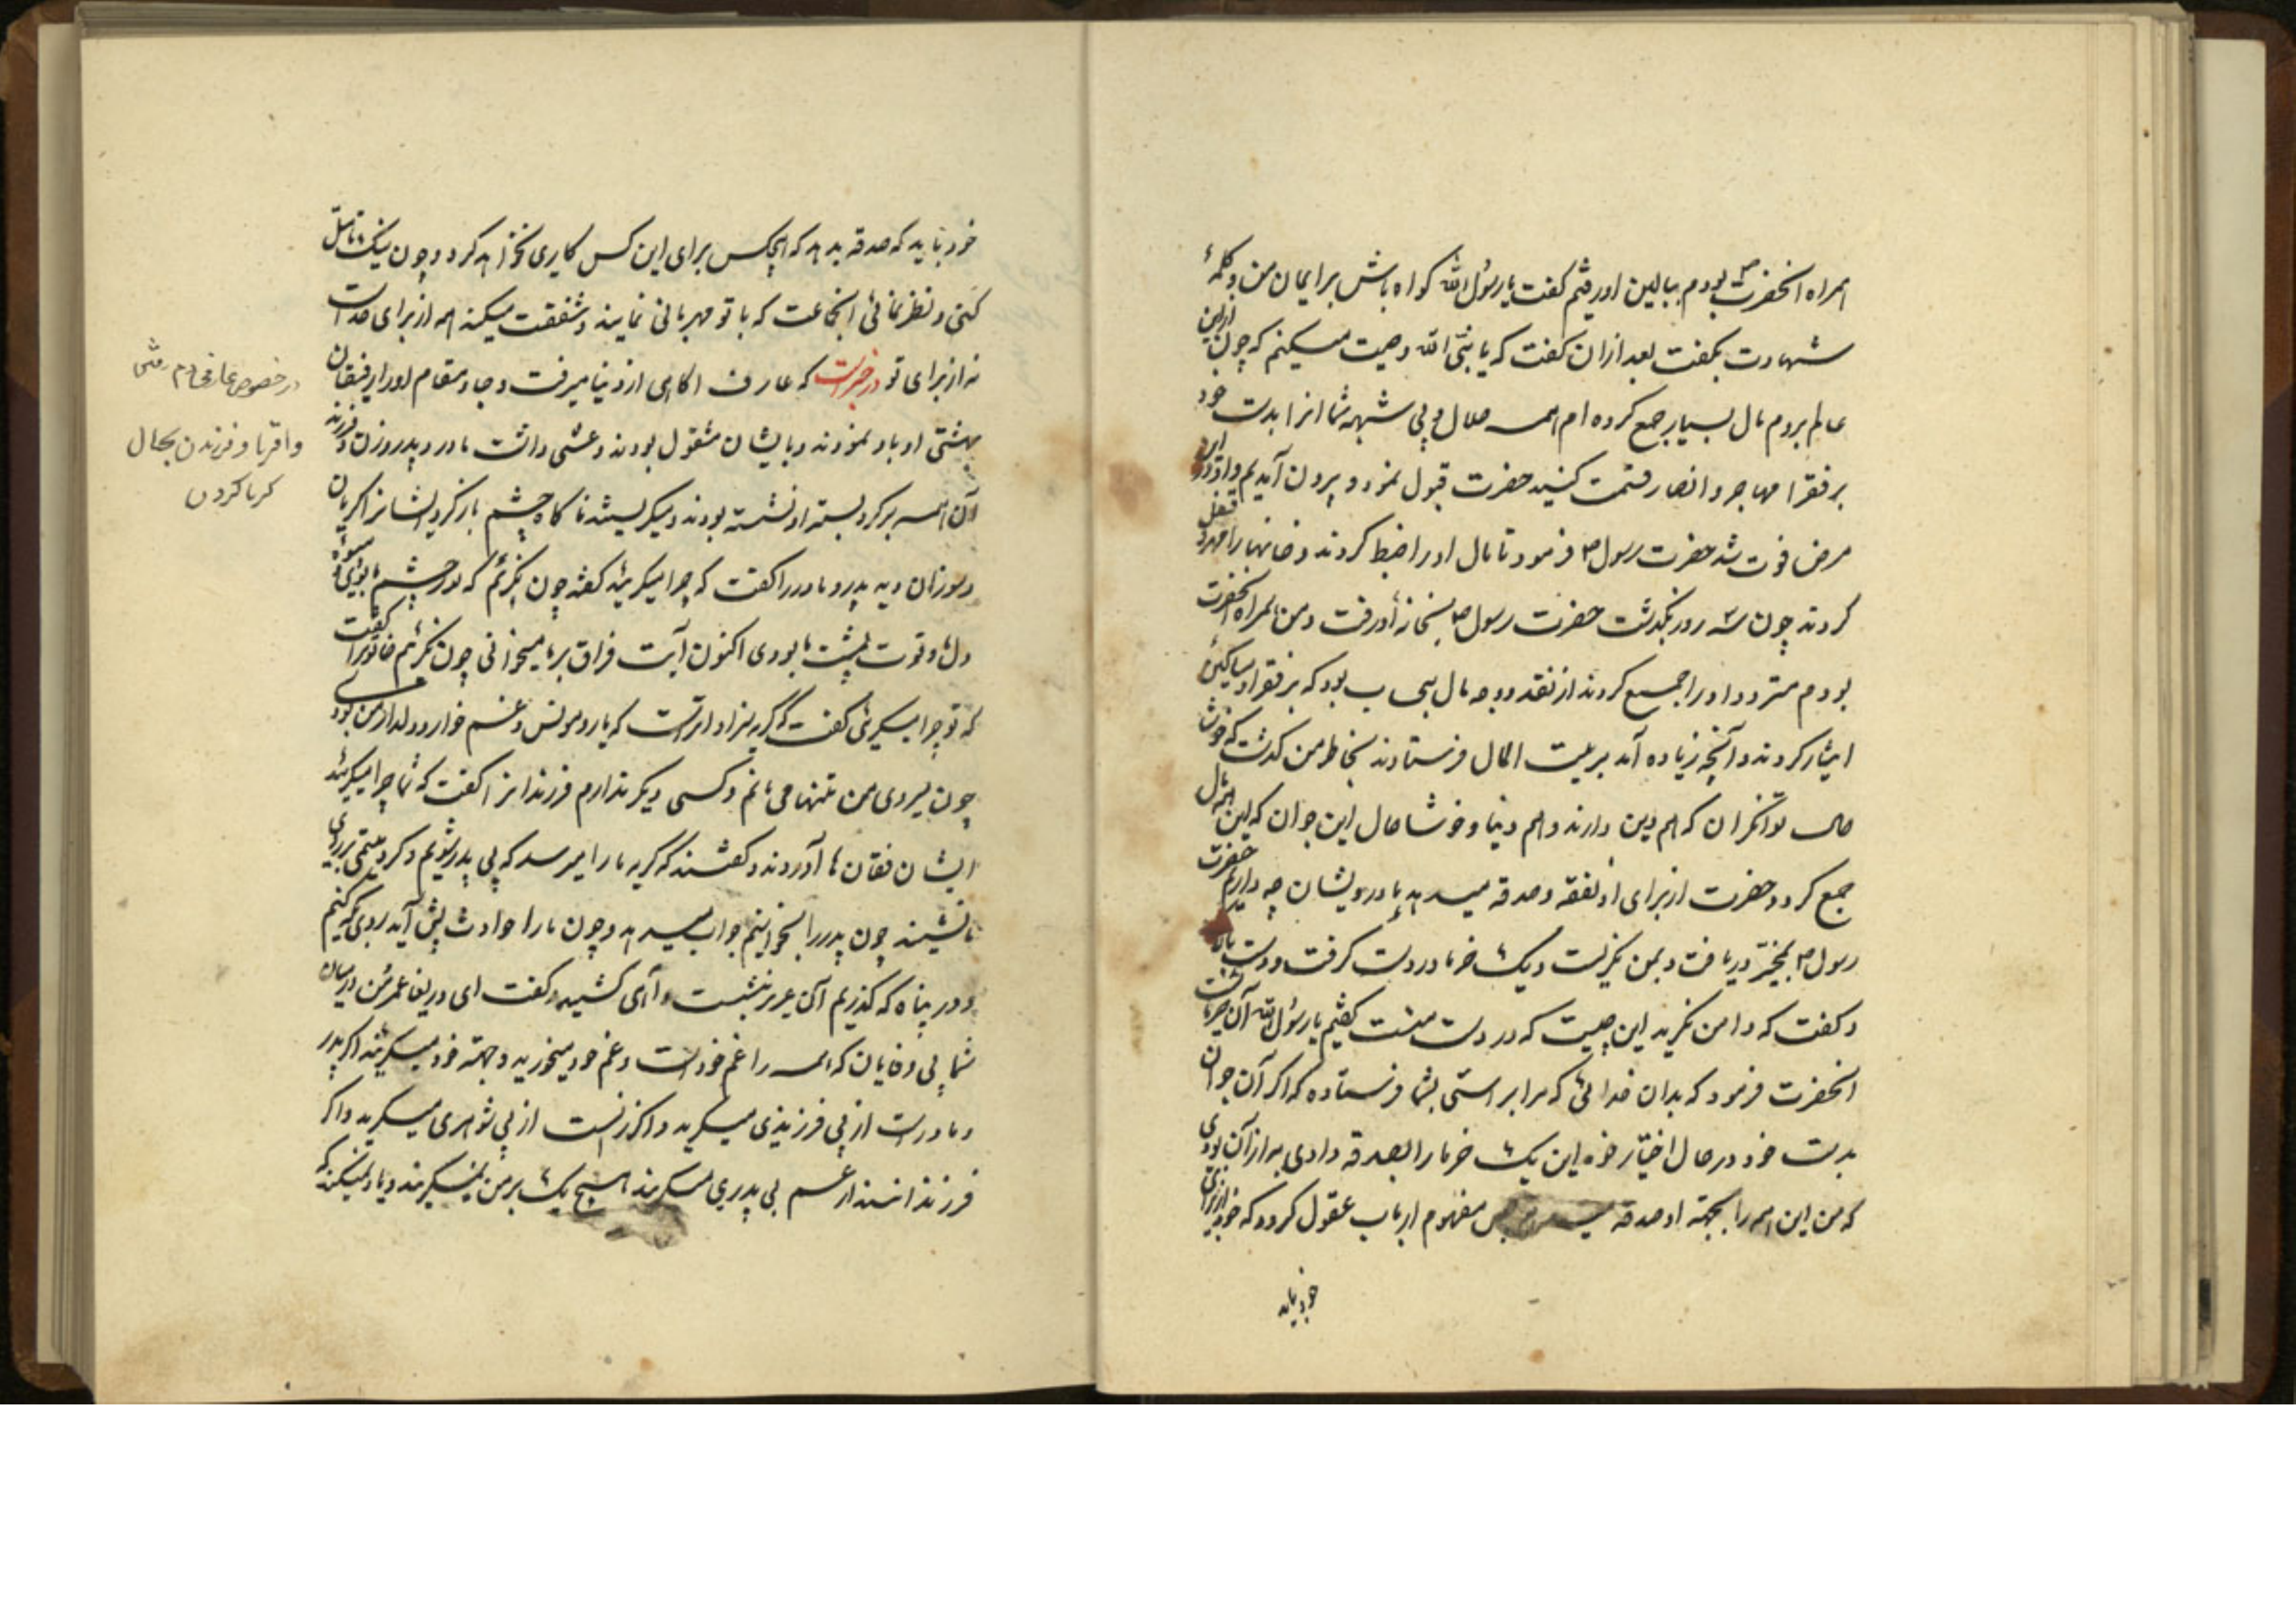 همراه انحضرت ص بودم ببالین او رفتیم کفت یا رسول الله کواه باش بر ایمان من و کلمهٔ
شهادت بکفت بعد ازان کفت که یا نبی الله وصیت میکنم که چون ازین
عالم بروم مال بسیار جمع کرده ام همه حلال و بی شبهه شما انرا بدست خود
بر فقرا مهاجر و انصار قسمت کنید حضرت قبول نمود و بیرون آمدیم و او دران
مرض فوت شد حضرت رسول ص فرمود تا مال او را ضبط کردند و خانهها را مهر و قفل
کردند چون سه روز بکذشت حضرت رسول ص بخانهٔ او رفت و من همراه انحضرت
بودم متردد او را جمع کردند از نقد و وجه مال بیحساب بود که بر فقرا و مساکین
ایثار کردند و آنچه زیاده آمد بر بیت المال فرستادند بخاطر من کذشت که خوش
حال توانکران که هم دین دارند و هم دنیا و خوشا حال این جوان که این همه مال
جمع کرد و حضرت از برای او نفقه و صدقه میدهد ما درویشان چه داریم حضرت
رسول ص دریافت و بمن نکریست و یک خرما در دست کرفت و دست بالا
و کفت که دامن نکرید این چیست که در دست منست کفتیم یا رسول الله آن خرماست
انحضرت فرمود که بدان خدائی که مرا براستی بشما فرستاده که اکر آن جوان
بدست خود در حال اختیار خود این یک خرما را بصدقه دادی به ازان بودی
که من این همه را بجهته او صدقه پس مفهوم ارباب عقول کردد که خود از برای
خود بباید
خود بباید که صدقه بدهد که هیچکس برای این کس کاری نخواهد کرد و چون نیک تامل
کنی و نظر نمائی انجماعت که با تو مهربانی نمایند و شفقت میکنند همه از برای خداست
نه از برای تو در خبرست که عارف اکاهی از دنیا میرفت و جا و مقام او را رفیقان
بهشتی او باو نمودند و بایشان مشغول بودند و غشی داشت مادر و پدر و زن و فرزند
آن همه بر کرد بستر او نشسته بودند و میکریستند ناکاه چشم باز کرد ایشانرا کریان
و سوزان دید پدر و مادر را کفت که چرا میکریید کفتند چون نکرییم که نور چشم ما بودی و میوهٔ
دل ما و قوت پشت ما بودی اکنون آیت فراق بر ما میخوانی چون نکرییم خاتونرا کفت
که تو چرا میکریی کفت که کریه سزاوار تراست که یار و مونس و غمخوار و دلدار من بودی
چون میروی من تنها می مانم و کسی دیکر ندارم فرزندانرا کفت که شما چرا میکریید
ایشان فغان ها آوردند و کفتند که کریه ما را میرسد که بی پدر شویم و کرد یتیمی بر روی
ما نشیند چون پدر را بخوانیم جواب میدهد و چون ما را حوادث پیش آید روی بکه کنیم
و در پناه که کذریم آن عزیز بنشست و آهی کشید و کفت ای دریغا عمر من درمیان
شما بی وفایان که همه را غم خودست و غم خود میخورید و جهته خود میکریید اکر پدر
و مادرست از بی فرزندی میکرید و اکر زنست از بی شوهری میکرید و اکر
فرزندانند از غم بی پدری میکریند هیچ یک بر من نمیکریند و یاد نمیکنند که
در خصوص عارف
واقربا و فرزندن بحال
کریا کردن